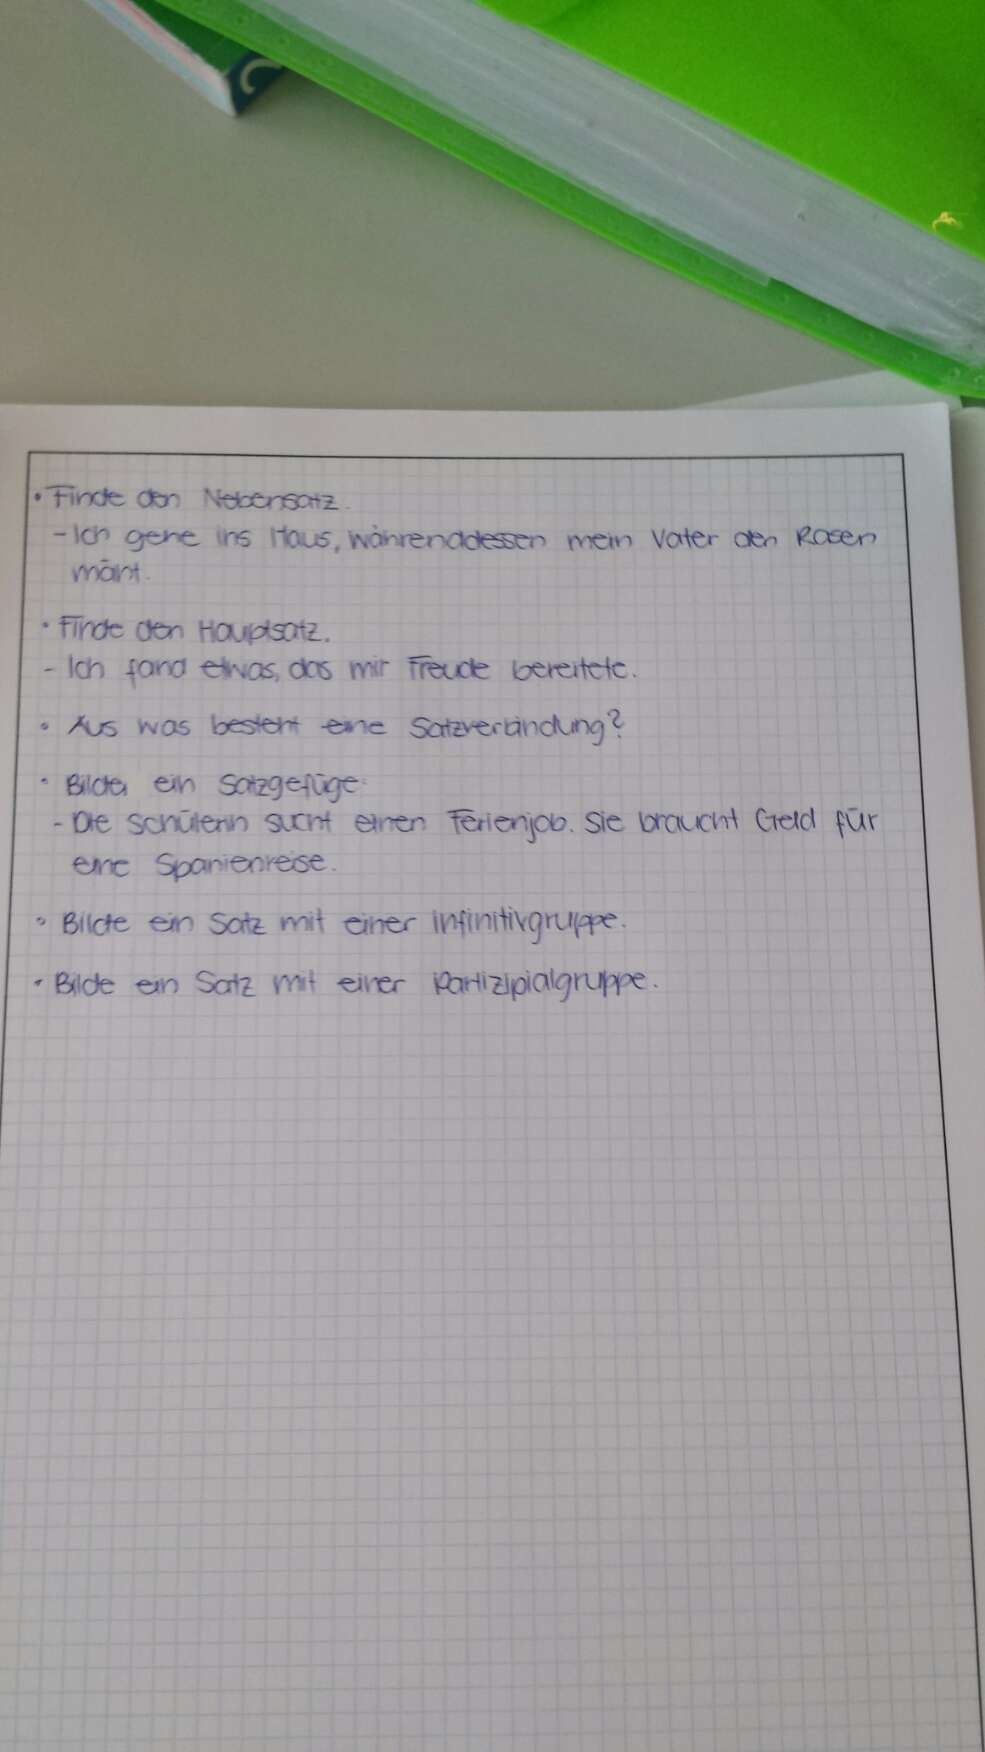 • Finde den Nebensatz.
- Ich gehe ins Haus, währenddessen mein Vater den Rasen
mäht.
• Finde den Hauptsatz.
- Ich fand etwas, das mir Freude bereitete.
• Aus was besteht eine Satzverbindung?
• Bilde ein Satzgefüge:
- Die Schülerin sucht einen Ferienjob. Sie braucht Geld für
eine Spanienreise.
• Bilde ein Satz mit einer Infinitivgruppe.
• Bilde ein Satz mit einer Partizipialgruppe.